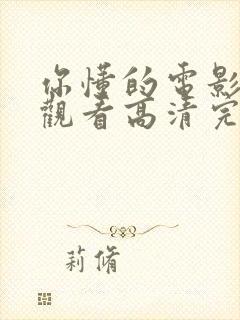 你懂的电影
觀看高清完
莉脩